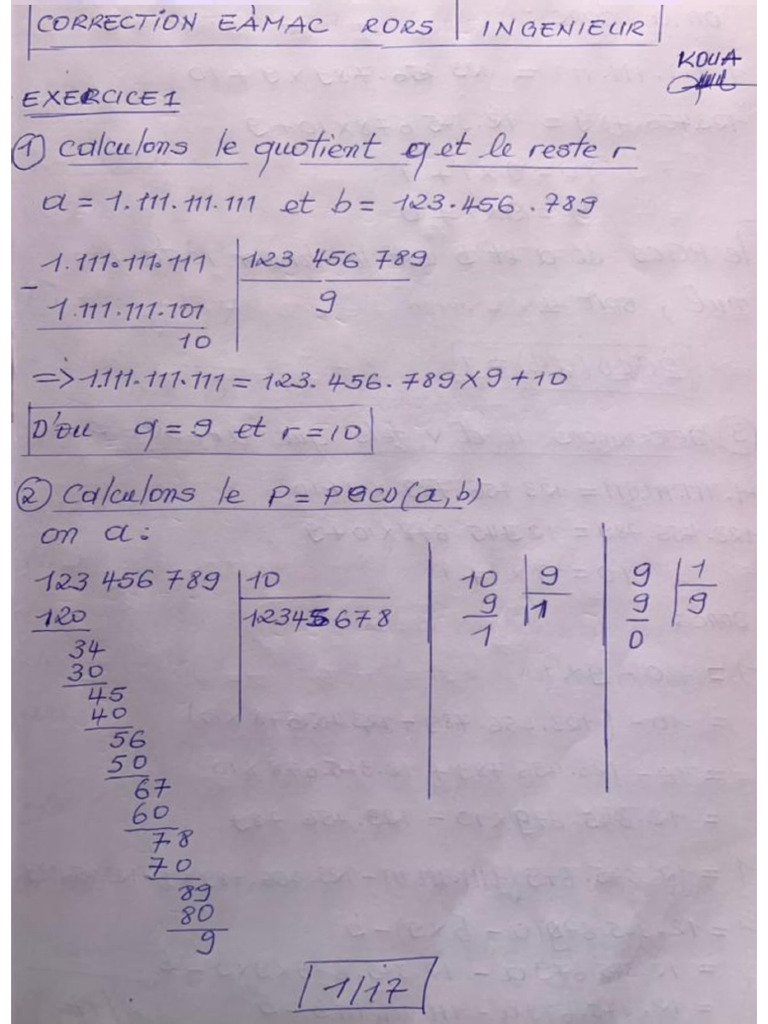 CORRECTION EAMAC RORS INGENIEUR
KOUA
EXERCICE 1
① Calculons le quotient q et le reste r
a = 1.111.111.111 et b = 123.456.789
1.111.111.111 | 123 456 789
- 1.111.111.101 | 9
10
=> 1.111.111.111 = 123.456.789 x 9 + 10
D'où q = 9 et r = 10
② Calculons le P = PGCD(a,b)
on a :
123 456 789 | 10 | 10 | 9 | 9 | 1
120 | 12345678 | 9 | 1 | 9 | 9
34 | 1 | 0
30
45
40
56
50
67
60
78
70
89
80
9
1/17